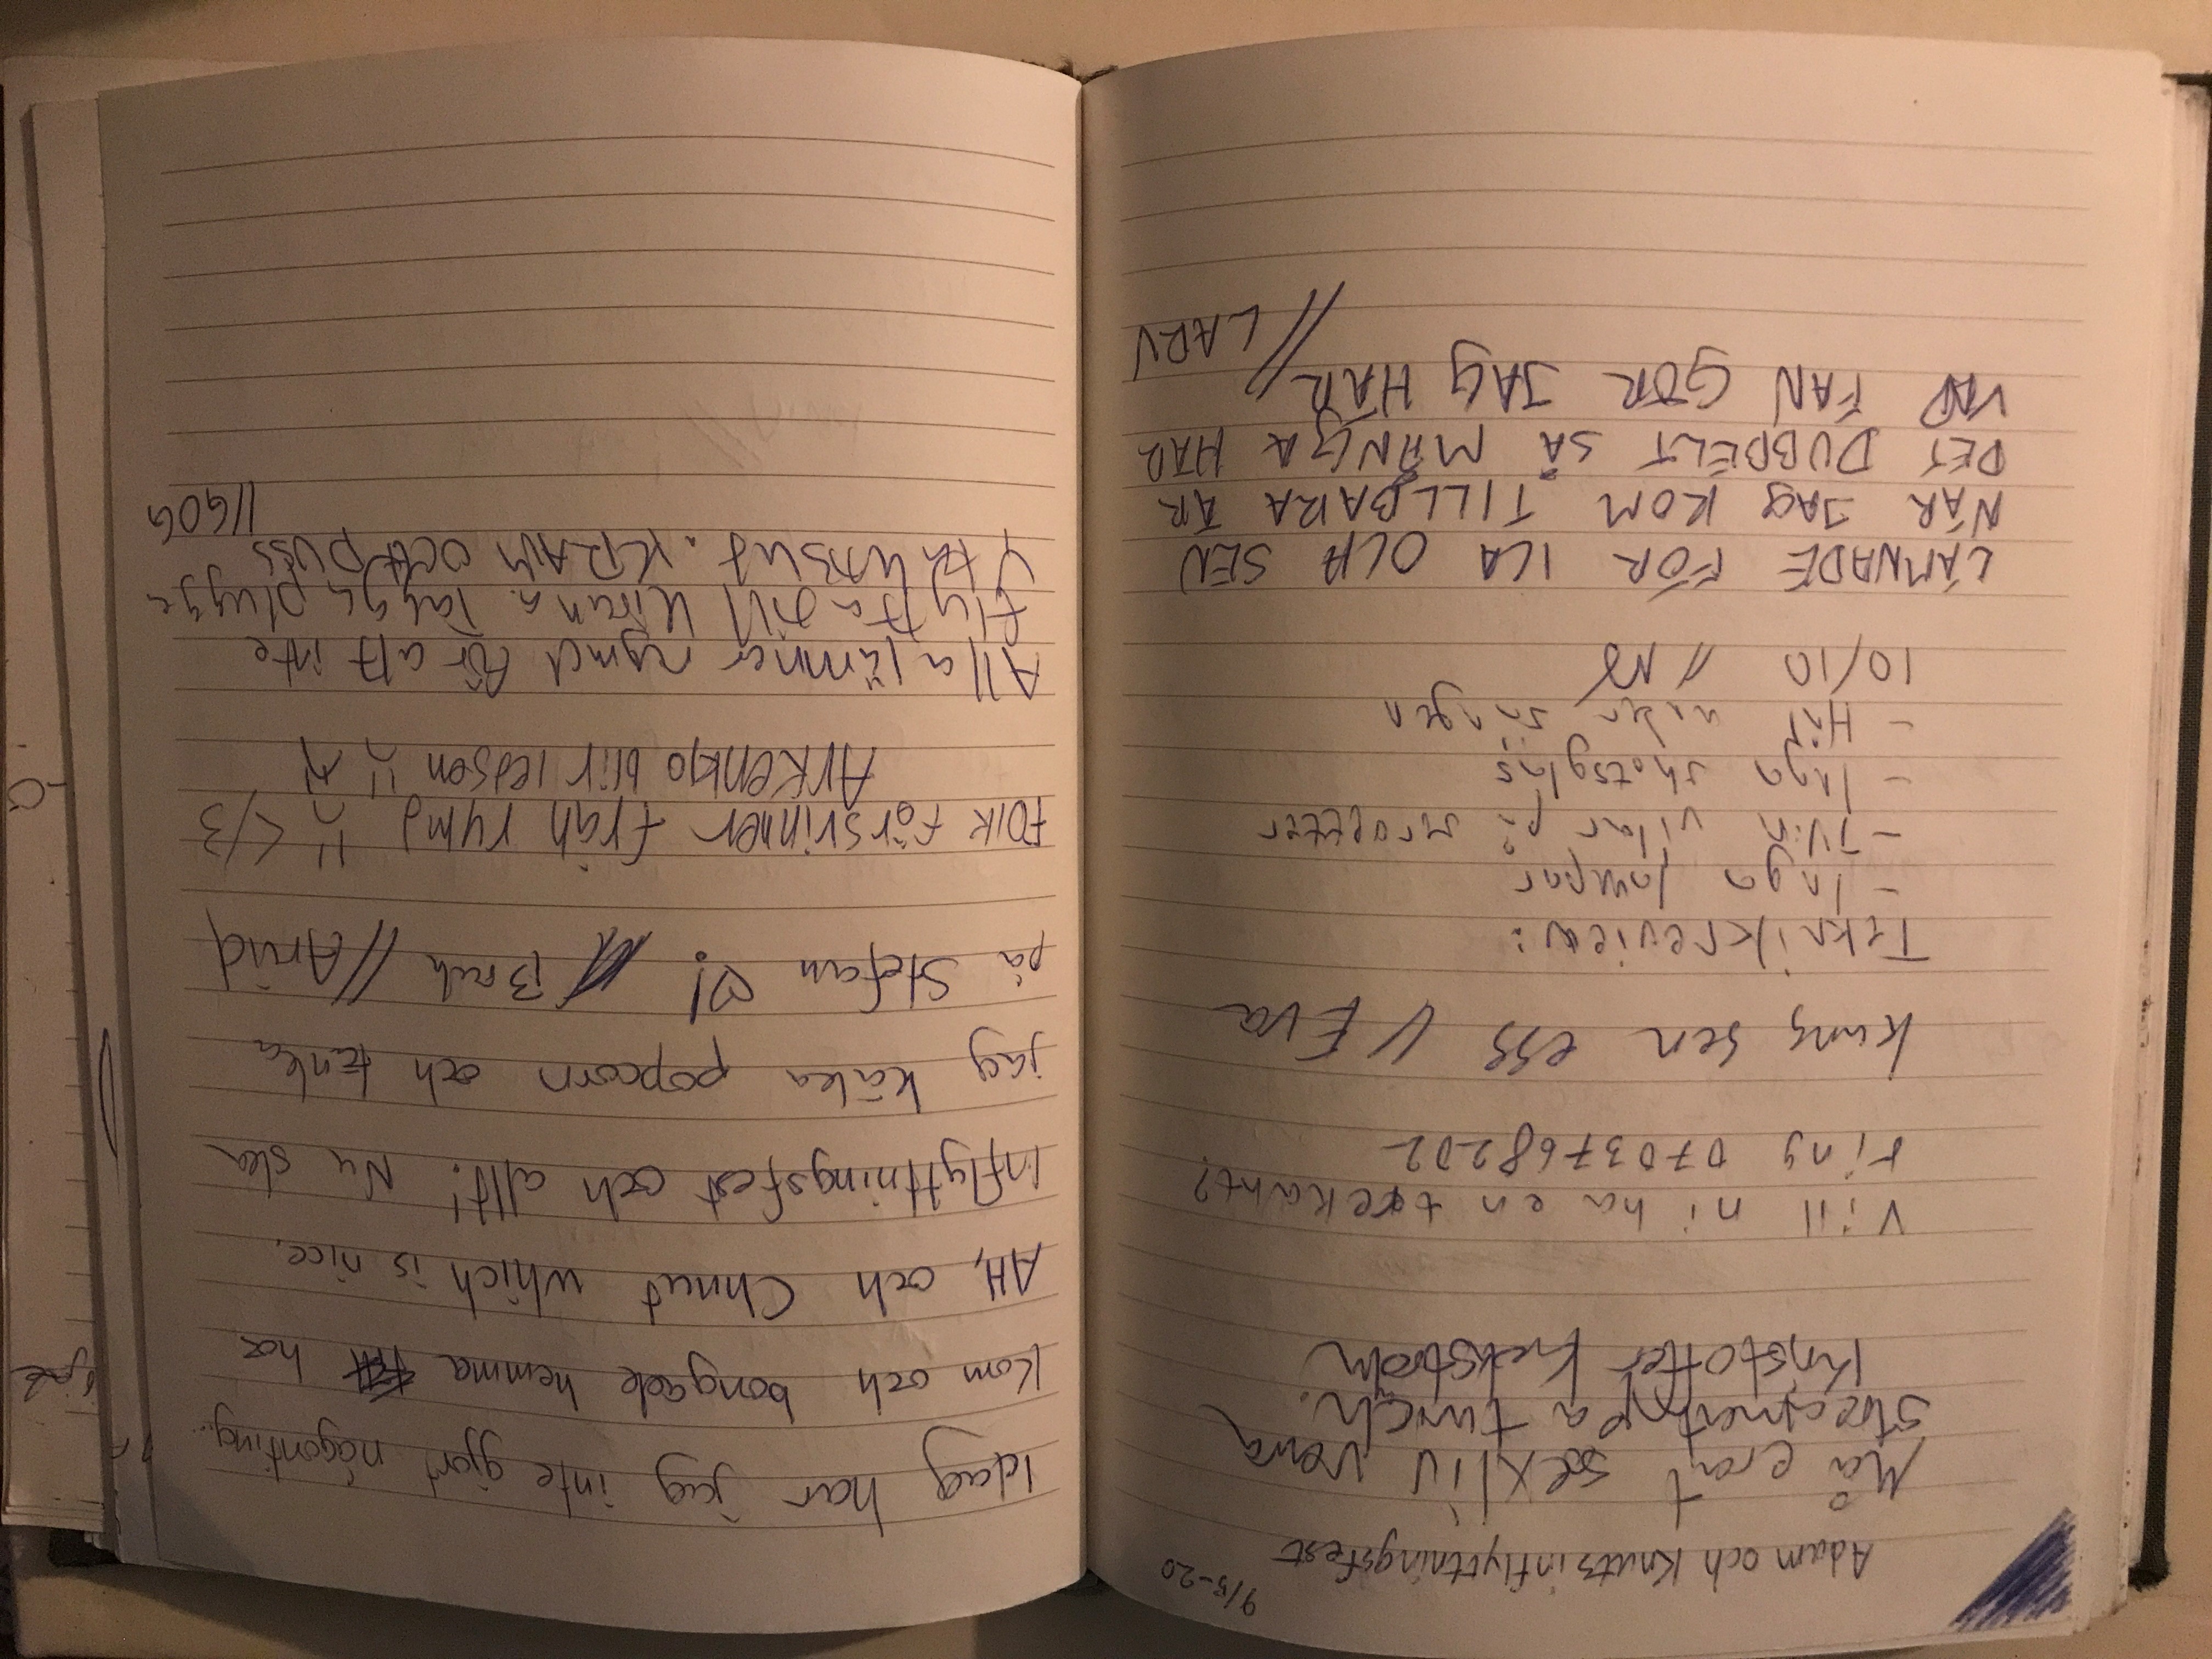 Adam och Knuts inflyttningsfest
9/5-20
Må erat sexliv vara
streamat på twich.
Kristoffer Krekström
Vill ni ha en trekant?
ring 0703768202
Kung sen ess // Eva
Teknikreview:
- Inga lampor
- Tvin vilar på serpetter
- Inga shotsglas
- Hårt under sängen
10/10 // NS
LÄMNADE FÖR ICA OCH SEN
NÄR JAG KOM TILLBAKA ÄR
DET DUBBELT SÅ MÅNGA HÄR
VAD FAN GÖR JAG HÄR
// LARV
Idag har jag inte gjort någonting...
Kom och bongade hemma hos
AH, och Chnut which is nice.
Inflyttningsfest och allt! Nu ska
jag käka popcorn och tänka
på Stefan ♡! Bruh // Arvid
FOLK försvinner från rymd ¨∩ </3
Arkenkjo blir ledsen ¨∩
Alla lämner rymd för att inte
flytta till kirana. Tagga plugga
YTHUBSVT. KRAM OCH PUSS
//GOG